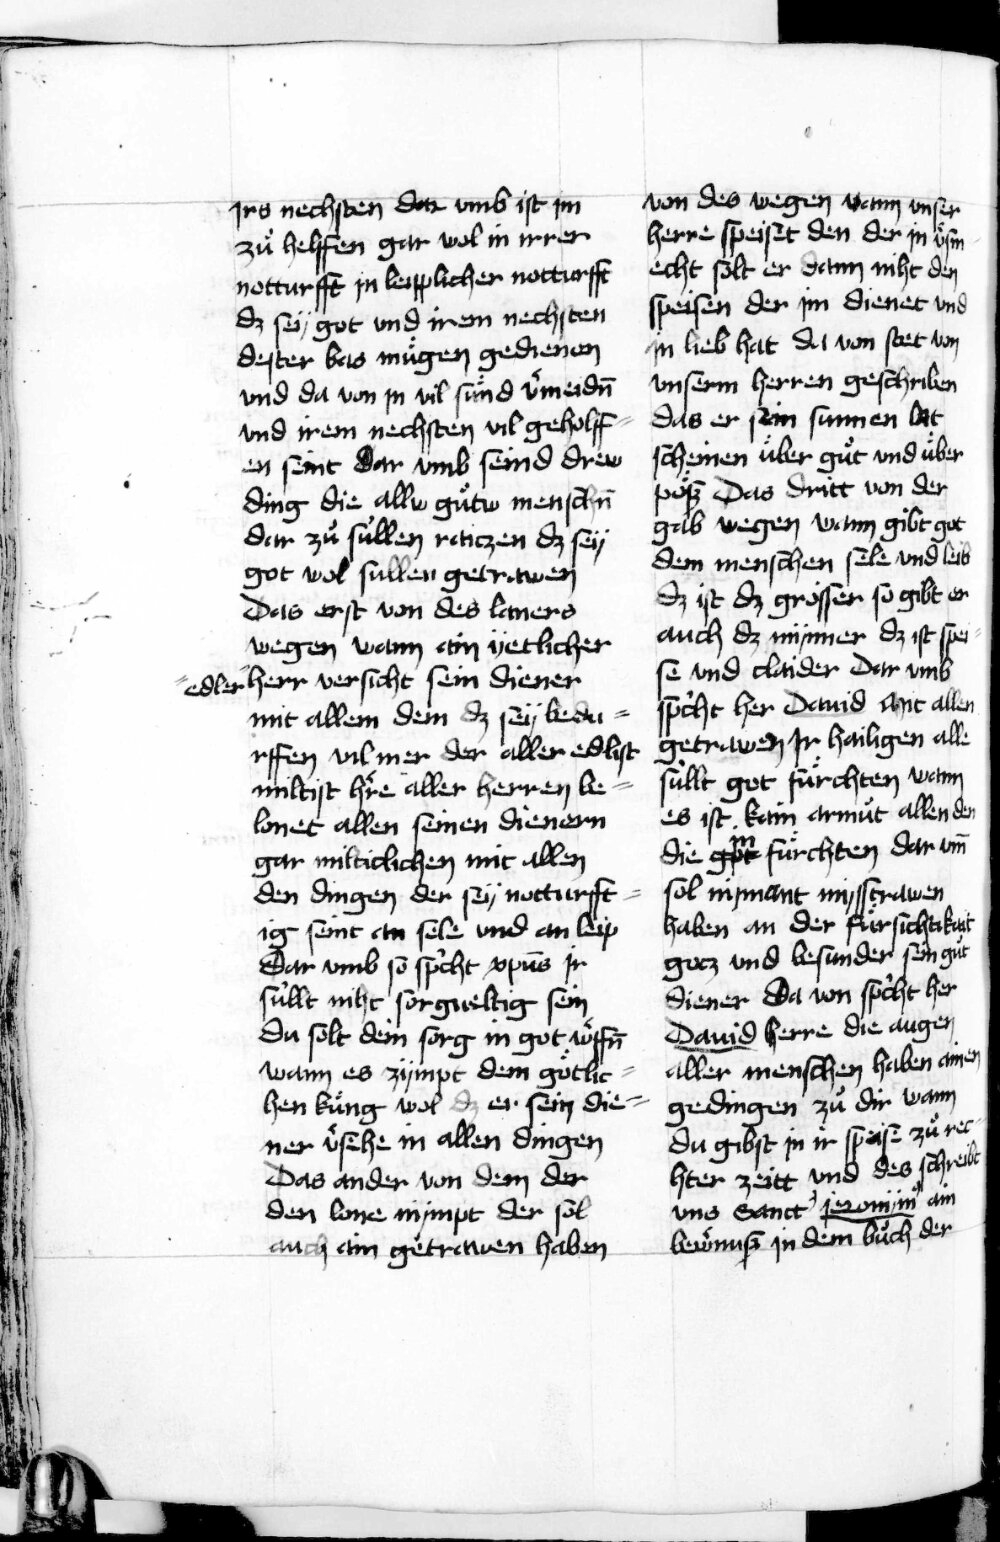 irs nechsten dar vmb ist im
zů helffen gar wol in irer
notturfft in leipplicher notturfft
dz seÿ got vnd irem nechsten
dester bas mügen gedienen
vnd da von in vil sünd v̾meidn̄
vnd irem nechsten vil geholff=
en seint Dar vmb seind drew
ding die allw gůtw menschn̄
dar zů süllen raitzen dz seÿ
got wol sullen getrawen
Das erst von des laners
wegen wann ain ÿetlicher
=edler herr versicht sein diener
mit allem dem dz seÿ bedu=
rffen vil mer der aller edlist
miltist hr̄e aller herren be=
lonet allen seinen dienern
gar milticlichen mit allen
den dingen der seÿ notturfft=
ig seint an sele vnd an leip
Dar vmb so sp̾cht xpūs Ir
süllt niht sorgueltig sein
du solt dein sorg in got w̾ffn̄
wann es zÿmpt dem götlic=
hen küng wol dz er sein die=
ner v̾sehe in allen dingen
Das ander von dem der
den lone nÿmpt der sol
auch ain getrawen haben
von des wegen wann vnser
herre speiset den der in v̾sm
echt solt er dann niht den
speisen der im dienet vnd
in lieb hat da von stet von
vnserm herren geschriben
das er sein sunnen lat
scheinen über gůt vnd über
pöß Das dritt von der
gab wegen wann gibt got
dem menschen sele vnd leib
dz ist dz grösser so gibt er
auch dz mÿnner dz ist spei=
se vnd claider Dar vmb
sp̾cht her Dauid Mit allen
getrawen Ir hailigen alle
süllt got fürchten wann
es ist kain armůt allen den
die got in fürchten dar vm̄
sol nÿmant mÿsstrawen
haben an der fürsichtikait
gotz vnd besunder sein gůt
diener Da von sp̾cht her
Dauid herre die augen
aller menschen haben ainen
gedingen zů dir wann
du gibst in ir speise zů rec=
hter zeitt vnd des schreibt
vns Sanct̾ ieronim̾ ain
bewernuß in dem bůch der